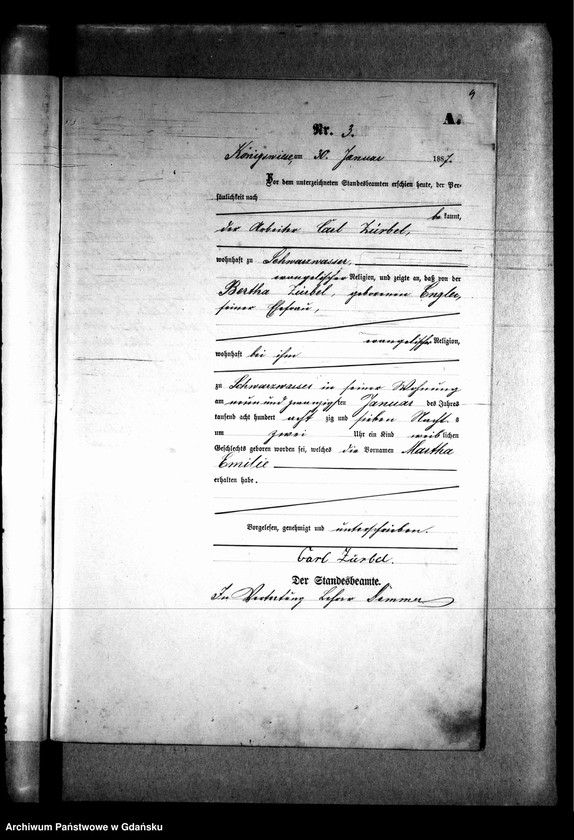 9
A.
Nr. 3.
Königswiese, am 30. Januar 1887.
Vor dem unterzeichneten Standesbeamten erschien heute, der Per-
sönlichkeit nach
be kannt,
der Arbeiter Carl Zürbel,
wohnhaft zu Schwarzwasser,
evangelischer Religion, und zeigte an, daß von der
Bertha Zürbel, geborenen Engler,
seiner Ehefrau,
evangelischer Religion,
wohnhaft bei ihm
zu Schwarzwasser in seiner Wohnung
am neun und zwanzigsten Januar des Jahres
tausend acht hundert acht zig und sieben Nacht. s
um zwei Uhr ein Kind weib lichen
Geschlechts geboren worden sei, welches die Vornamen Martha
Emilie
erhalten habe.
Vorgelesen, genehmigt und unterschrieben.
Carl Zürbel.
Der Standesbeamte.
In Vertretung Lehrer
Archiwum Państwowe w Gdańsku